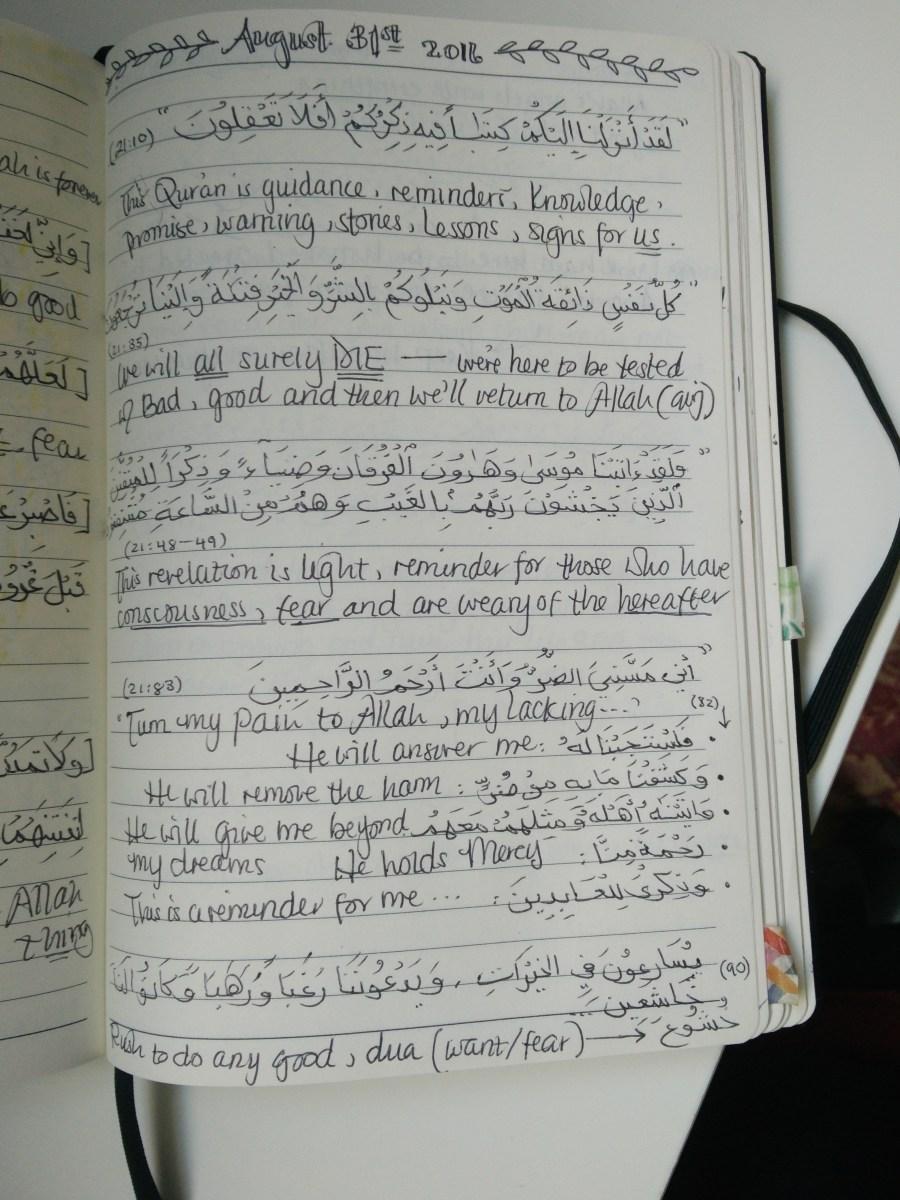 August 31st 2016
"لَقَدْ أَنزَلْنَا إِلَيْكُمْ كِتَٰبًا فِيهِ ذِكْرُكُمْ أَفَلَا تَعْقِلُونَ"
(21:10)
This Qurán is guidance, reminders, Knowledge,
promise, warning, stories, Lessons, signs for us.
"كُلُّ نَفْسٍ ذَائِقَةُ الْمَوْتِ وَنَبْلُوكُمْ بِالشَّرِّ وَالْخَيْرِ فِتْنَةً وَإِلَيْنَا تُرْجَعُونَ
(21:35)
We will all surely DIE — we're here to be tested
of Bad, good and then we'll return to Allah
"وَلَقَدْ ءَاتَيْنَا مُوسَىٰ وَهَٰرُونَ الْفُرْقَانَ وَضِيَاءً وَذِكْرًا لِلْمُتَّقِينَ
ٱلَّذِينَ يَخْشَوْنَ رَبَّهُمْ بِالْغَيْبِ وَهُمْ مِنَ السَّاعَةِ
(21:48-49)
This revelation is light, reminder for those who have
conscousness, fear and are weary of the hereafter
"أَنِّي مَسَّنِيَ الضُّرُّ وَأَنْتَ أَرْحَمُ الرَّاحِمِينَ
(21:83)
"Turn my pain to Allah, my lacking...
(82)
He will answer me: فَاسْتَجَبْنَا لَهُ •
He will remove the harm: وَكَشَفْنَا مَا بِهِ مِنْ ضُرٍّ •
He will give me beyond وَءَاتَيْنَٰهُ أَهْلَهُ وَمِثْلَهُمْ مَعَهُمْ •
my dreams He holds Mercy: رَحْمَةً مِنَّا •
This is a reminder for me ...: وَذِكْرَىٰ لِلْعَابِدِينَ •
يُسَارِعُونَ فِي الْخَيْرَاتِ، وَيَدْعُونَنَا رَغَبًا وَرَهَبًا وَكَانُوا لَنَا
(90)
خَاشِعِينَ ...
Rush to do any good, dua (want/fear) → خشوع
ah is forever
good
لَعَلَّهُمْ
fear
قَبْلَ غُرُوبِ
Allah
thing